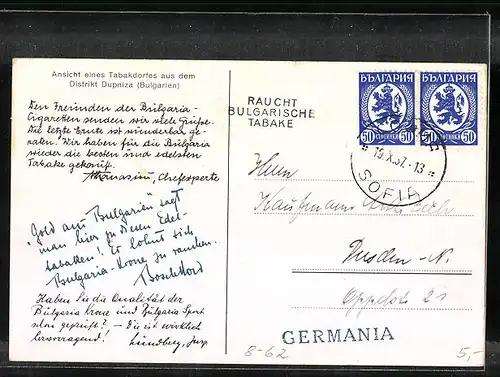 Ansicht eines Tabakdorfes aus dem
Distrikt Dupniza (Bulgarien)
Den Freunden der Bulgaria-
Cigaretten senden wir viele Grüsse.
Die letzte Ernte ist wunderbar ge-
raten. Wir haben für die Bulgaria
wieder die besten und edelsten
Tabake gekauft.
Athanasiu, Chefexperte
"Gold aus Bulgarien" sagt
man hier zu diesen Edel-
tabaken! Es lohnt sich
Bulgaria-Krone zu rauchen.
Haben Sie die Qualität der
Bulgaria Krone und Bulgaria Sport
schon geprüft? – Die ist wirklich
hervorragend!
RAUCHT
BULGARISCHE
TABAKE
БЪЛГАРИЯ БЪЛГАРИЯ
50 50 50 50
19.X.37.-13
SOFIA
Herrn
Kaufmann
Dresden-N.
Oppelstr 21
GERMANIA
8-62
5,-